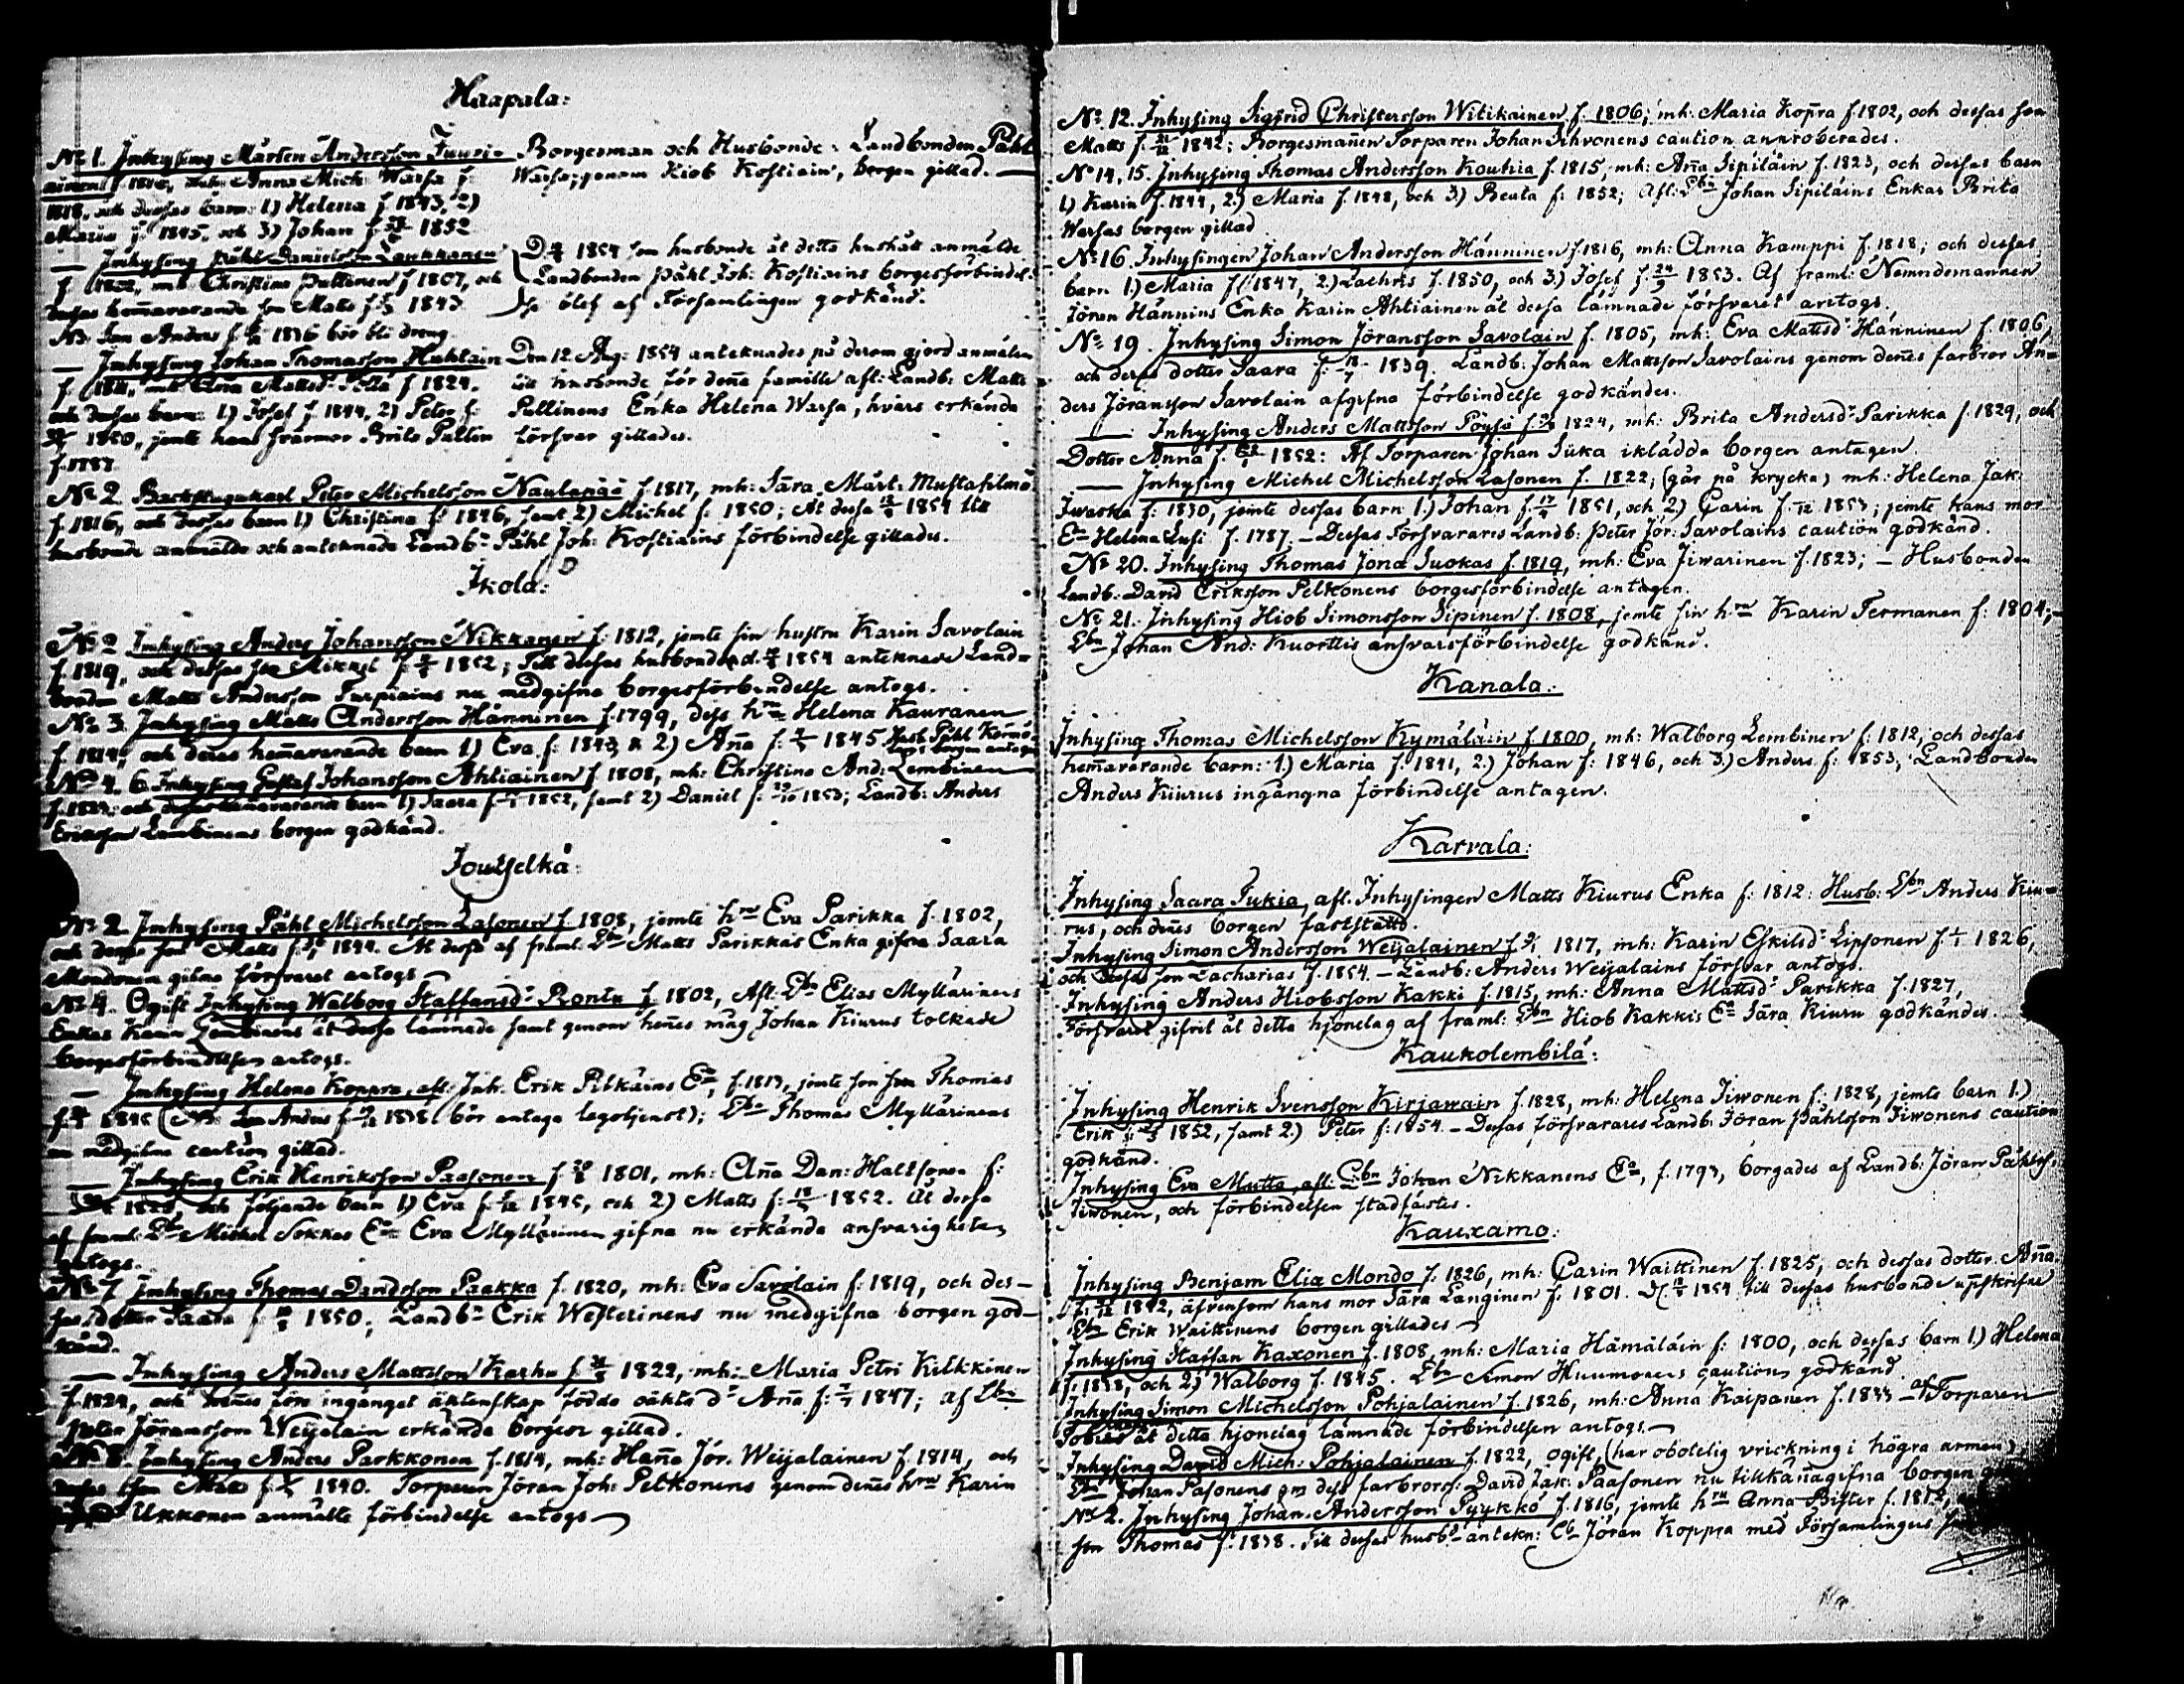 Haapala:
No 1. Inhysing Mårten Andersson Tuuri-
ainen f. mh: Anna Mich: Warsa f:
1818, och dessas barn: 1) Helena f. 1843, 2)
Maria f. 1845, och 3) Johan f. 1852
Borgesman och Husbonde: Landbonden Påhl
Warsa; genom Hiob Kostiain, borgen gillad. —
— Inhysing Påhl Danielsson Laukkanen
f. mh: Christina Pullinen f 1807, och
dessas hem̄avarande son Matts f. 1843
NB: Son Anders f. 1836 bör bli dreng
D. 1854 som husbonde åt detta hushåll anmälde
Landbonden Påhl Joh: Kostiains borgesförbindel-
se blef af Församlingen godkänd.
— Inhysing Johan Thomasson Huhtain
f. mh: Matts d:r f 1824.
och dessas barn: 1) Josef f. 1844, 2) Peter f:
1850, jemte hans svärmor Brita Pullin
f. 1787
Den 12 Aug: 1854 anteknades på derom gjord anmälan
till husbonde för den̄a familie afl: Landb: Matts
Pullinens Enka Helena Warsa, hvars erkända
försvar gillades.
No 2 Backstugukarl Peter Michelsson Naulapää f. 1817, mh: Sara Mårt: Mustahilmo
f. 1816, och dessas barn 1) Christina f: 1846, samt 2) Michel f: 1850; Åt dessa 1854 till
husbonde anmälde och anteknade Landb:n Påhl Joh: Kostiains förbindelse gillades.
Ikola:
No 2 Inhysing Anders Johansson Nikkanen f. 1812, jemte sin hustru Karin Savolain
f. 1819, och dessas son Mikkel f. 1852; Till dessas husbonde d. 1854 anteknade Land-
bonden Matts Andersson Turpiains nu medgifna borgesförbindelse antogs.
No 3. Inhysing Matts Andersson Hänninen f. 1799, dess h:ru Helena Kauranen
f. 1814, och deras hem̄avarande barn 1) Eva f: 1843, & 2) An̄a f: 1845 Husb: Påhl
borgen antagen
No 4. 6. Inhysing Gustaf Johansson Ahtiainen f. 1808, mh: Christina And: Lembinen
f. och dessas hemmavarande barn 1) Saara f. 1852, samt 2) Daniel f: 1853; Landb: Anders
Eriksson Lembinens borgen godkänd.
Joutselkä:
No 2. Inhysing Påhl Michelsson Lasonen f. 1808, jemte h:ru Eva Parikka f. 1802,
och deras son Matts f. 1844. Åt dessa af framl: Lbn Matts Parikkas Enka gifna Saara
Mondonen gifna försvaret antogs
No 4. Ogift Inhysing Walborg Staffansd:r Rontu f. 1802, Afl: Lbn Elias Myllärinens
Enkas Karin Lembinens åt dessa lämnade samt genom hen̄es måg Johan Kiurus tolkade
borgesförbindelsen antogs.
— Inhysing Helena Koppra, afl: Inh: Erik Pitkäins Ea, f. 1813, jemte son Thomas
f. 1845 (NB: Son Anders f. 1838 bör antaga legotjenst); Lbn Thomas Myllärinens
nu medgifna caution gillad.
— Inhysing Erik Henriksson Paasonen f. 1801, mh: An̄a Dan: Haltsonen f:
och följande barn 1) Eva f. 1845, och 2) Matts f: 1852. Åt dessa
af framl: Lbn Michel Sokkas Ea Eva Myllärinen gifna nu erkända ansvarigheten
antogs.
No 7 Inhysing Thomas Davidsson Paakka f. 1820, mh: Eva Savolain f: 1819, och des-
sas dotter Saara f. 1850; Landb:n Erik Westerinens nu medgifna borgen god-
känd.
— Inhysing Anders Mattsson Karhu f. 1822, mh: Maria Petri Kilkkinen
f. 1824, och hen̄es före ingånget äktenskap födda oäkta d:r An̄a f: 1847; af Lbn
Peter Jöransson Weijalain erkända borgen gillad.
No 8. Inhysing Anders Parkkonen f. 1814, mh: Han̄a Jör. Weijalainen f. 1814, och
dessas son Matts f. 1840. Torparen Jöran Joh: Pelkonens genom den̄es h:ru Karin
Ukkonen anmälte förbindelse antogs
No 12. Inhysing Sigfrid Christersson Witikainen f. 1806; mh: Maria Kop̄ra f 1802, och dessas son
Matts f. 21/12 1842; Borgesman̄en Torparen Johan Ihvonens caution approberades.
No 14, 15. Inhysing Thomas Andersson Kouhia f. 1815, mh: An̄a Sipiläin f. 1823, och dessas barn
1) Karin f. 1844, 2.) Maria f. 1848, och 3.) Beata f: 1852; Afl: Lbn Johan Sipiläins Enkas Brita
Warsas borgen gillad
No 16. Inhysingen Johan Andersson Hänninen f. 1816, mh: Anna Kamppi f. 1818; och dessas
barn 1.) Maria f. 1847, 2.) Zachris f. 1850, och 3.) Josef f. 24/9 1853. Af framl: Nämndemannen
Jören Hännins Enka Karin Ahtiainen åt dessa lämnade försvaret antogs.
No 19. Inhysing Simon Jöransson Savolain f. 1805, mh: Eva Mattsd:r Hänninen f. 1806,
och deras dotter Saara f: 18/7 1839. Landb: Johan Mattsson Savolains genom den̄es farbror An-
ders Jöransson Savolain afgifna förbindelse godkändes.
— Inhysing Anders Mattsson Pöyse f. 1824, mh: Brita Andersd:r Parikka f. 1829, och
Dotter Anna f. 1852: Af Torparen Johan Siika iklädda borgen antagen.
— Inhysing Michel Michelsson Lasonen f. 1822; (går på krycka) mh: Helena Jak:
Iwaska f: 1830, jemte dessas barn 1.) Johan f. 17/4 1851, och 2) Carin f. 1853; jemte hans mor
Ea Helena Susi f. 1787. — Dessas Försvarares Landb: Peter Jör: Savolains caution godkänd.
No 20. Inhysing Thomas Jona Suokas f. 1819, mh: Eva Jiwarinen f. 1823; — Husbonden
Landb: David Eriksson Pelkonens borgesförbindelse antagen.
No 21. Inhysing Hiob Simonsson Sipinen f. 1808, jemte sin h:ru Karin Termanen f: 1804;
Lbn Johan And: Kuorttis ansvarsförbindelse godkänd.
Kanala:
Inhysing Thomas Michelsson Kymäläin f. 1800, mh: Walborg Lembinen f: 1812, och dessas
hem̄avarande barn: 1.) Maria f. 1841, 2.) Johan f: 1846, och 3.) Anders f: 1853, Landbonden
Anders Kiurus ingångna förbindelse antagen.
Karvala:
Inhysing Saara Tukia, afl. Inhysingen Matts Kiurus Enka f: 1812: Husb: Lbn Anders Kiu-
rus, och den̄es borgen fastställd.
Inhysing Simon Andersson Weijalainen f. 1817, mh: Karin Eskilsd:r Lipsonen f. 1826,
och dessas son Zacharias f. 1854. — Landb: Anders Weijalains försvar antogs.
Inhysing Anders Hiobsson Kakki f. 1815, mh: Anna Mattsd:r Parikka f. 1827,
Försvaret gifvit åt detta hjonelag af framl: Lbn Hiob Kakkis Ea Sara Kiuru godkändes.
Kaukolembilä:
Inhysing Henrik Svensson Kirjawain f. 1828, mh: Helena Jiwonen f: 1828, jemte barn 1.)
Erik f: 1852, samt 2.) Peter f: 1854. — Dessas försvarares Landb: Jöran Påhlsson Jiwonens caution
godkänd.
Inhysing Eva Mutta, afl: Lbn Johan Nikkanens Ea, f. 1793, borgades af Landb: Jöran Påhlss:
Jiwonen, och förbindelsen stadfästes.
Kauxamo:
Inhysing Benjam Eliæ Mondo f. 1826, mh: Carin Waittinen f. 1825, och dessas dotter An̄a
f. 1852, äfvensom hans mor Sara Langinen f. 1801. D. 1854 till dessas husbonde uppskrifne
Lbn Erik Waittinens borgen gillades
Inhysing Staffan Kaxonen f. 1808, mh: Maria Hämäläin f: 1800, och dessas barn 1.) Helena
f: 1838, och 2.) Walborg f. 1845. Lbn Simon Huumonens caution godkänd.
Inhysing Simon Michelsson Pohjalainen f. 1826, mh: Anna Kaipanen f. 1833 — af Torparen
Tobias åt detta hjonelag lämnade förbindelsen antogs.
Inhysing David Mich: Pohjalainen f. 1822, ogift, (har obotelig vrickning i högra armen),
Lbn Johan Pasonens gm dess farbrors: David Jak: Paasonen nu tillkän̄agifna borgen
No 2. Inhysing Johan Andersson Pyykkö f. 1816, jemte h:ru Anna Bister f. 1812,
son Thomas f. 1838. Till dessas husb:d antekn: Lb Jöran Koppra med Församlingens